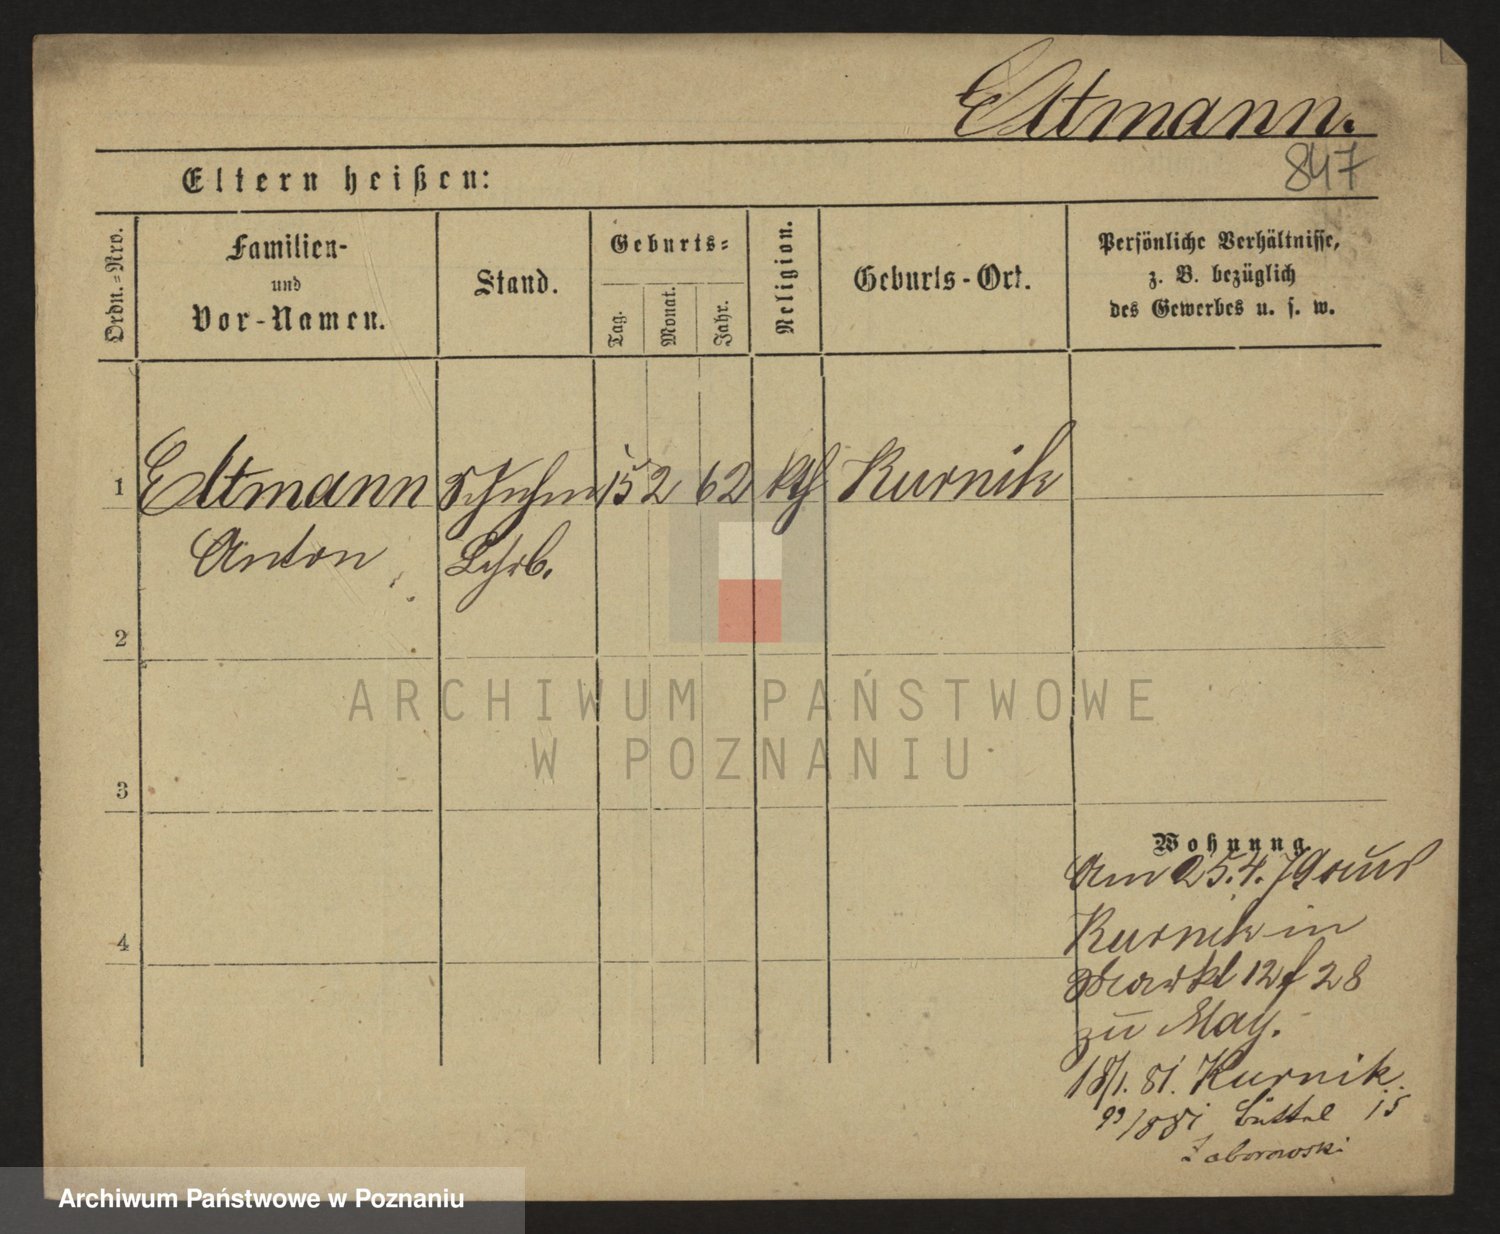 Eltmann.
847
Eltern heißen:
Ordn.=Nro.
Familien-
und
Vor-Namen.
Stand.
Geburts=
Tag.
Monat.
Jahr.
Religion.
Geburts-Ort.
Persönliche Verhältnisse,
z. B. bezüglich
des Gewerbes u. s. w.
1 Eltmann Schuhm 15 2 62 kth Kurnik
Anton Lehrb.
2
3
4
ARCHIWUM PAŃSTWOWE
W POZNANIU
Wohnung
Am 25.4.79 aus
Kurnik in
Markt 12 28
zu May.
18/1. 81. Kurnik.
Büttel 15
Zaborowski
Archiwum Państwowe w Poznaniu